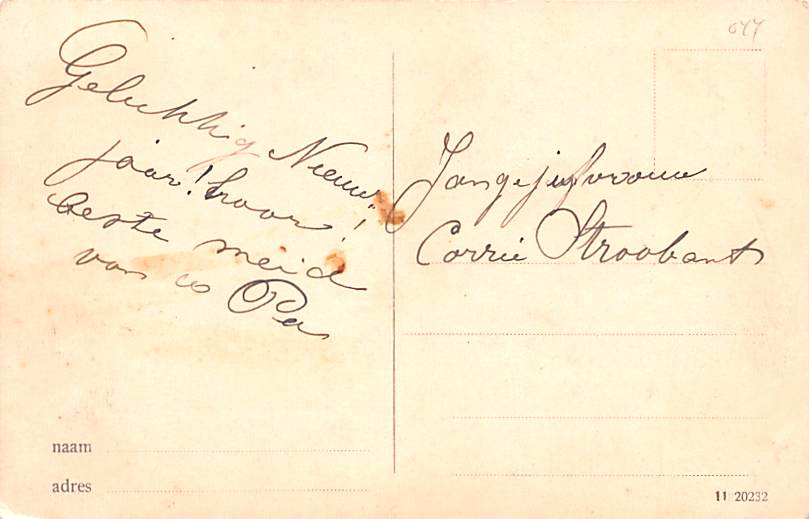 Gelukkig Nieuw
jaar! hoor!
beste meid
van uw Pa
Jongejufvrouw
Corrie Stroobant
naam
adres
11 20232